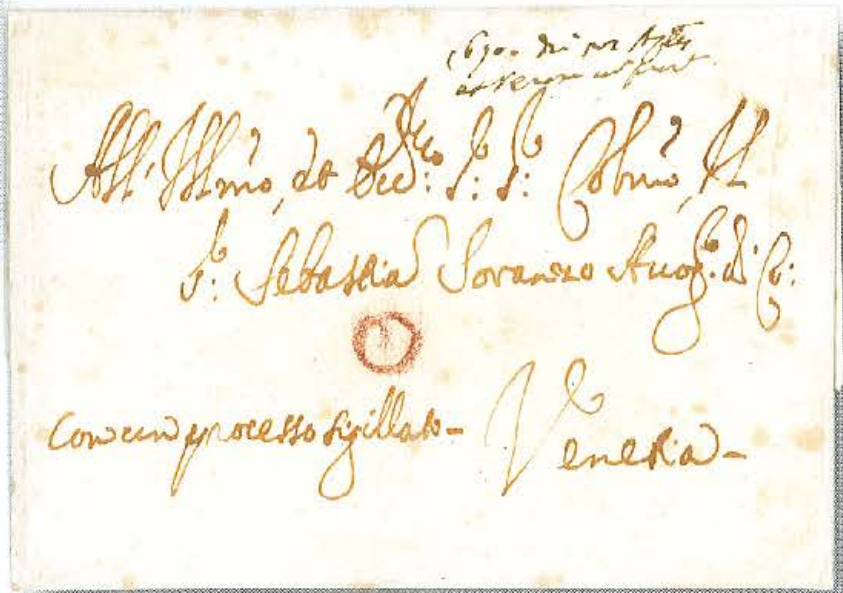 1690
All' Illmo, et Ecc: S: S: Colmo, Il
S: Sebastia Soranzo Avog: di C:
Con un processo sigillato -
Venetia -